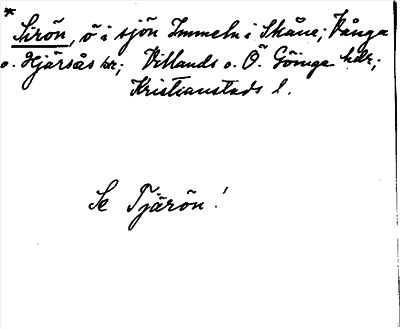 * Sirön, ö i sjön Immeln i Skåne; Vånga
o. Hjärsås snr; Villands o. Ö. Göinge hdr;
Kristianstads l.
Se Tjärön!